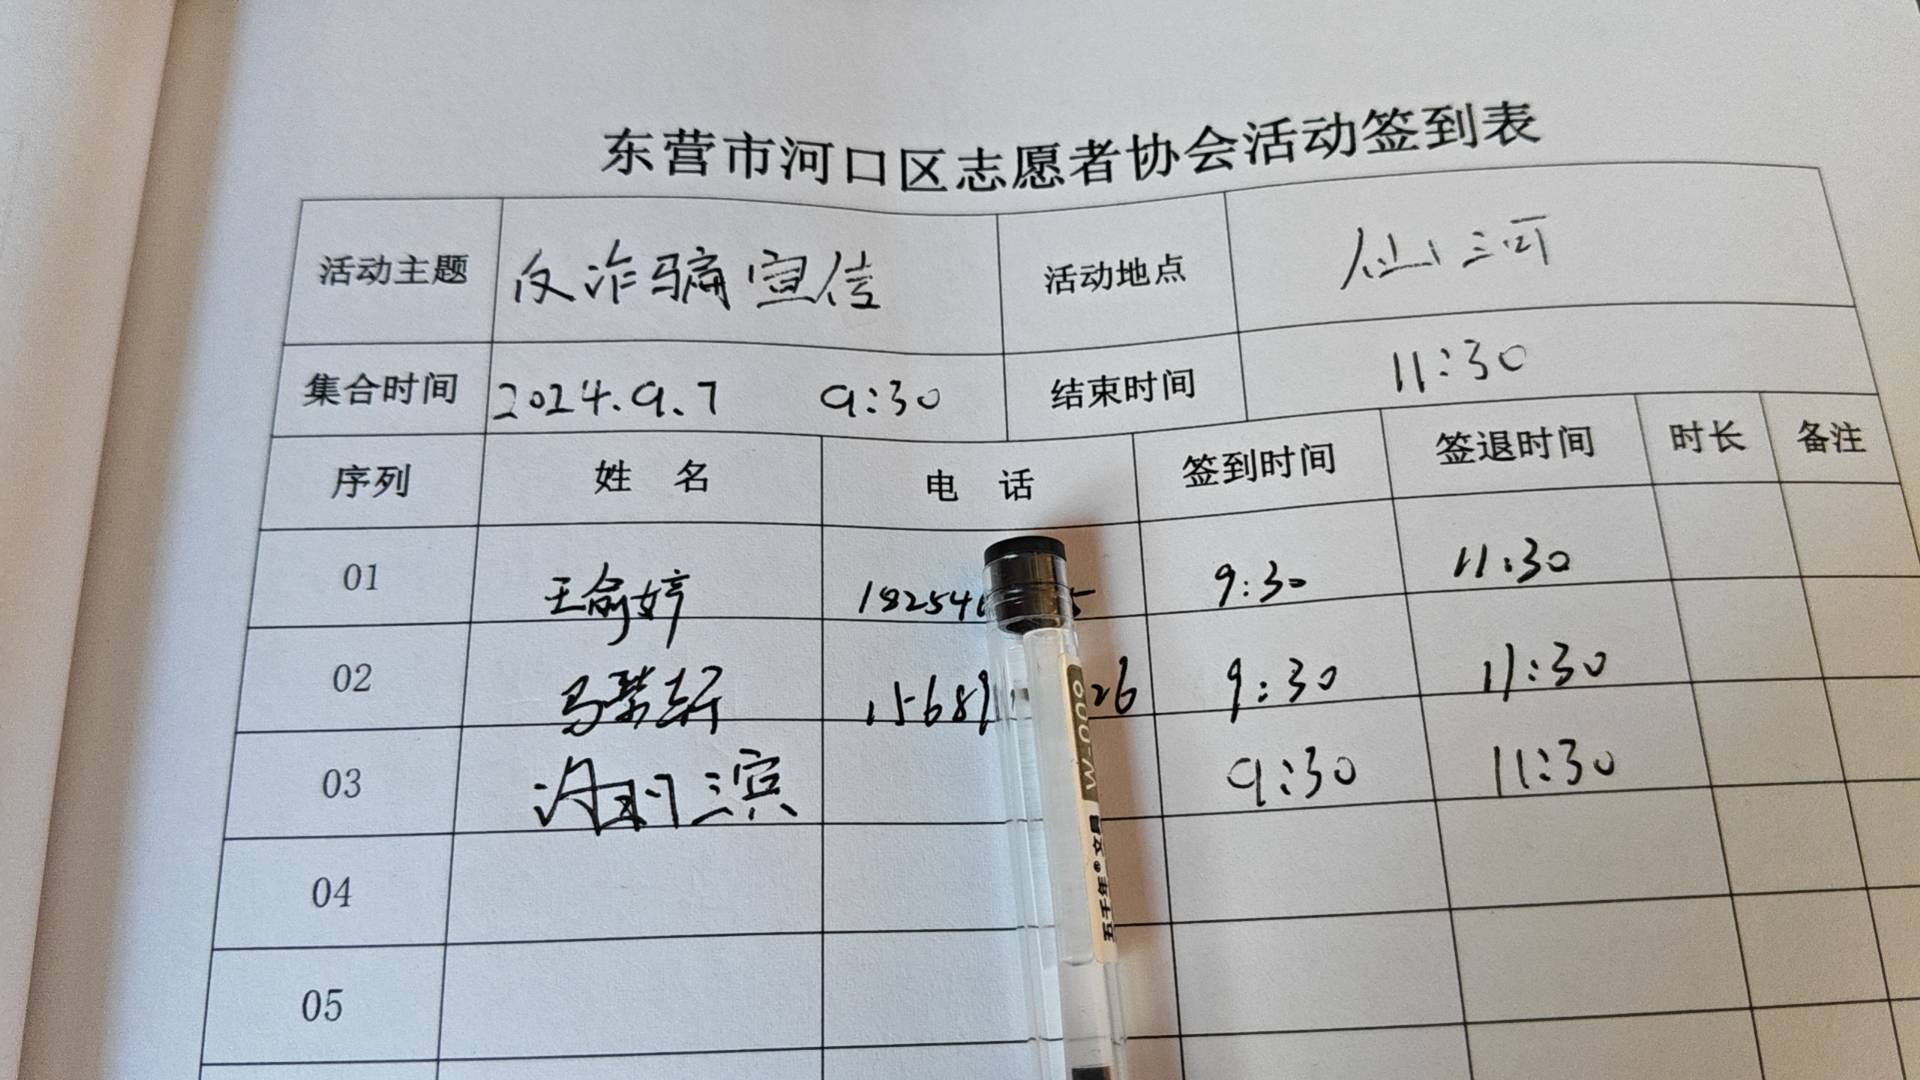 东营市河口区志愿者协会活动签到表
活动主题 反诈骗宣传 活动地点 仙河
集合时间 2024.9.7 9:30 结束时间 11:30
序列 姓 名 电 话 签到时间 签退时间 时长 备注
01 王俞婷 182546 5 9:30 11:30
02 马 轩 15689 26 9:30 11:30
03 滨 9:30 11:30
04
05
M-006
五千年®文具